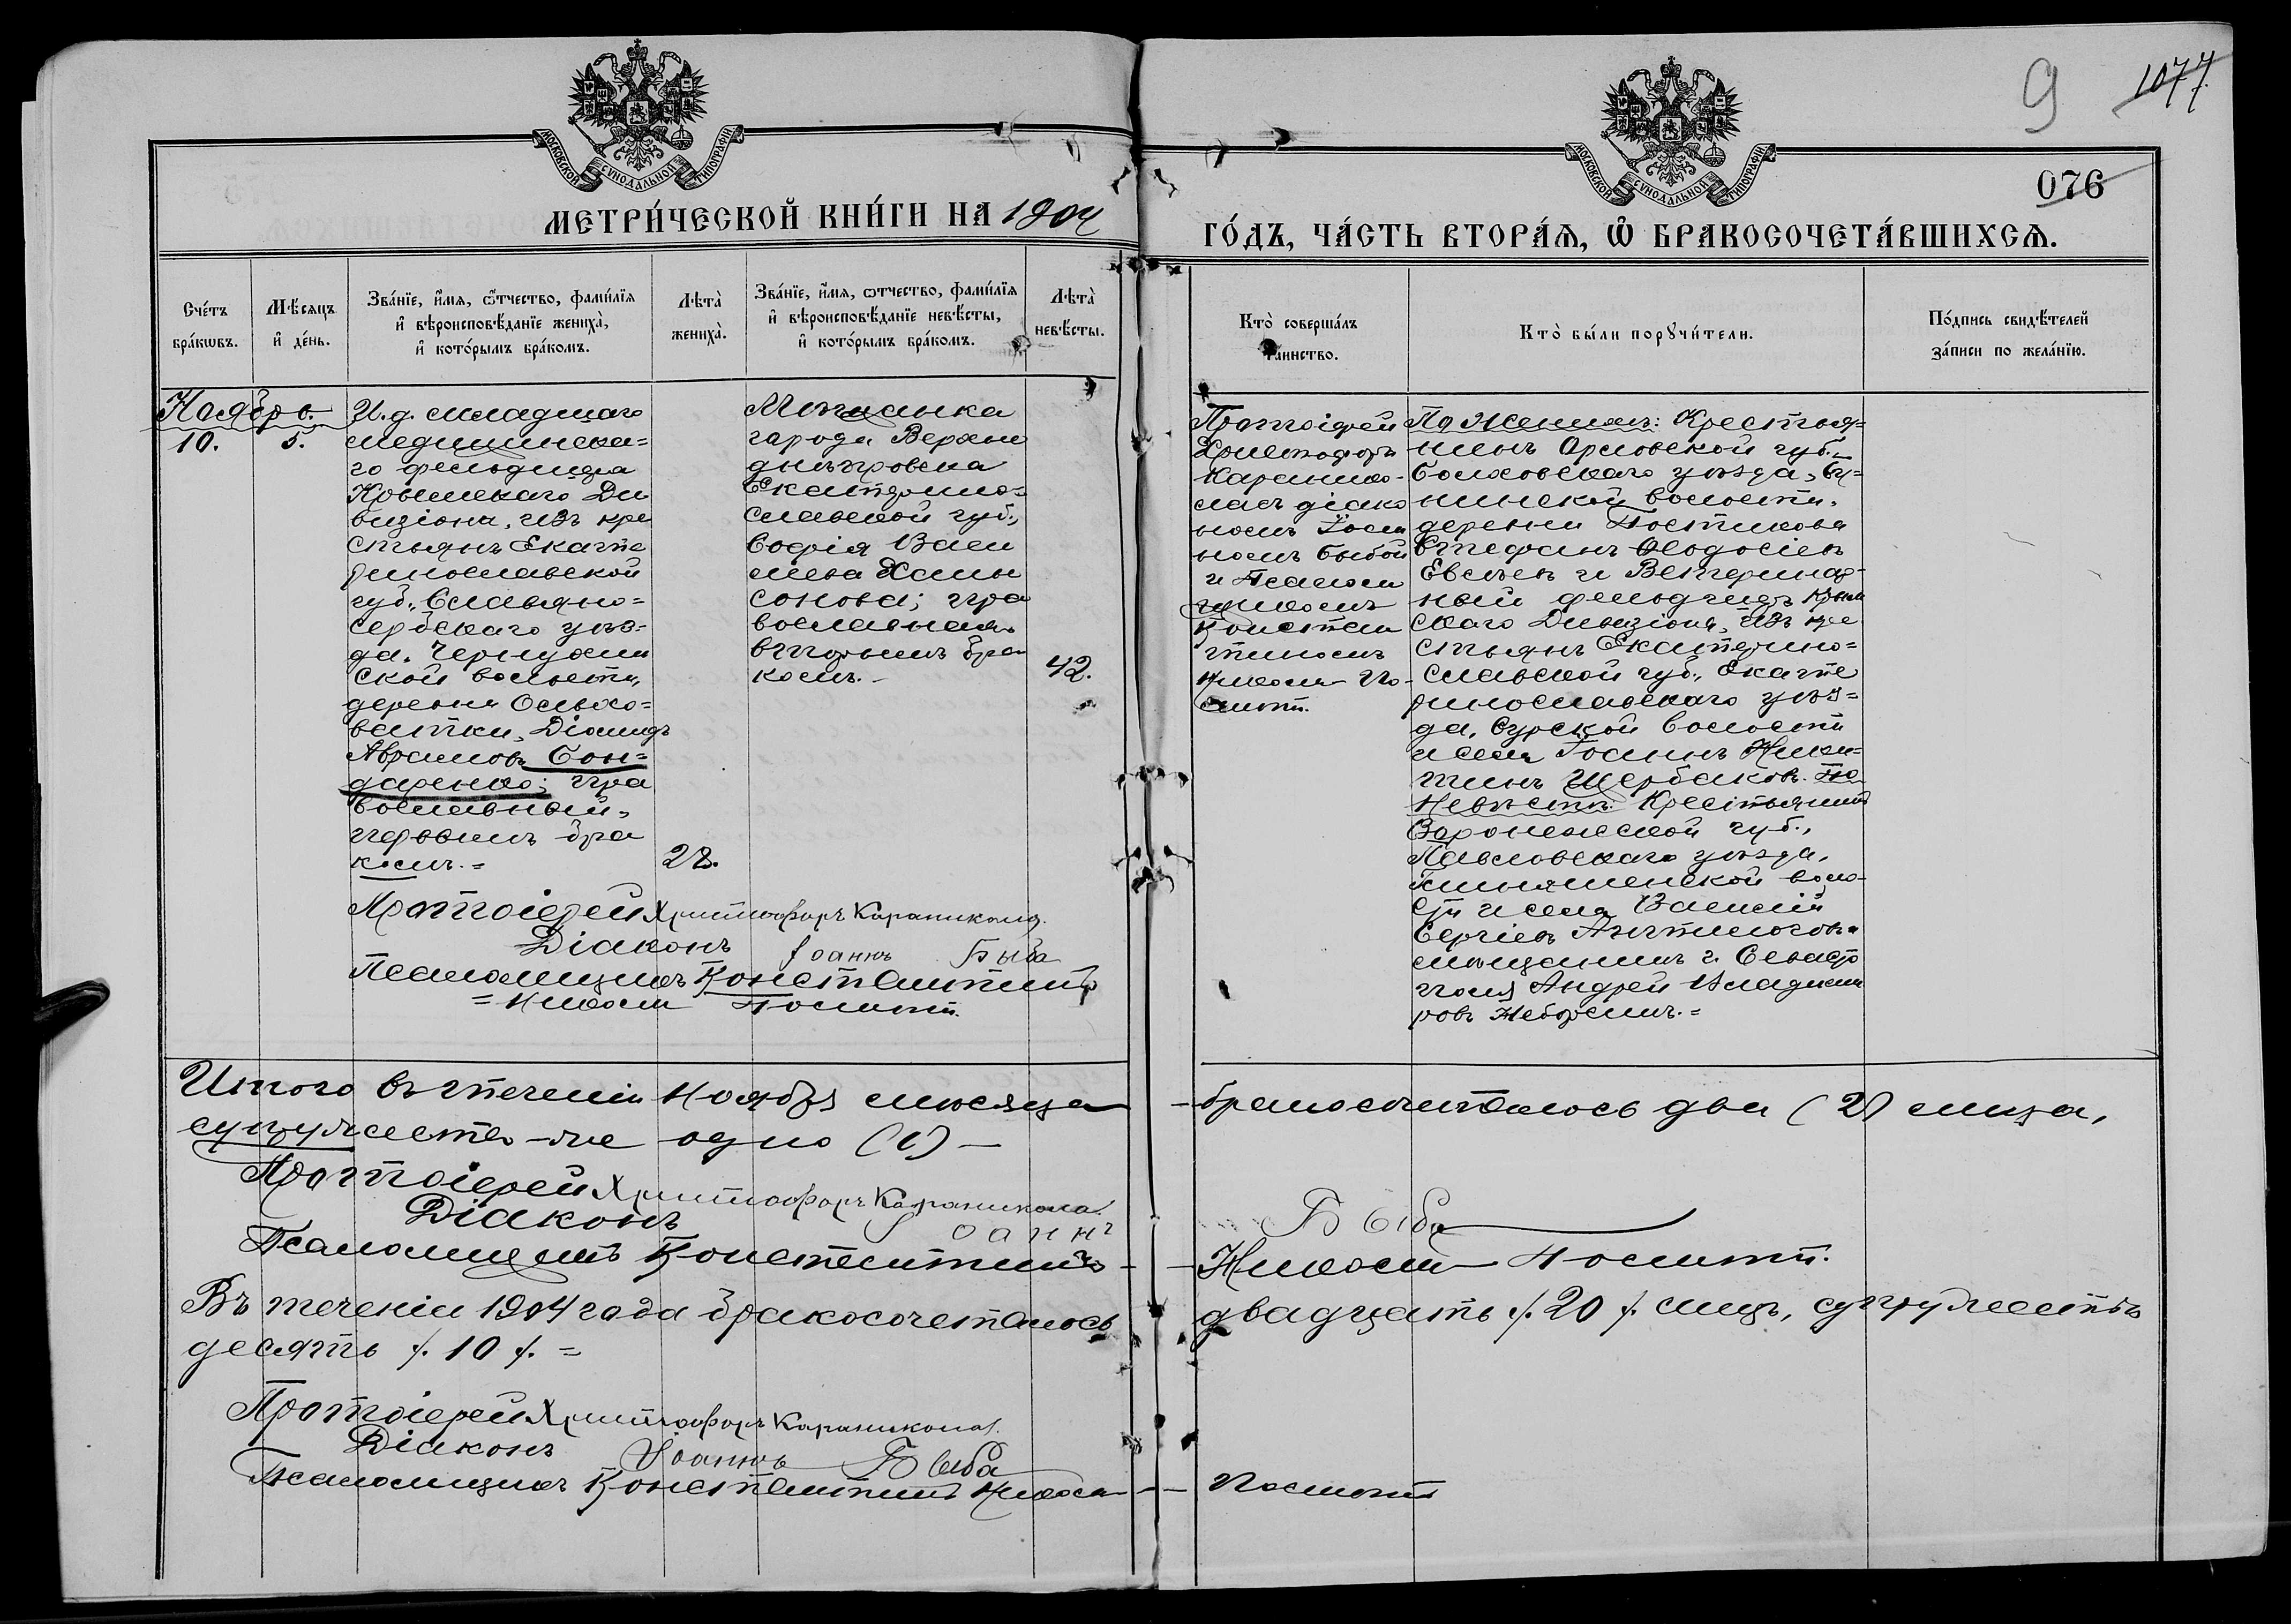 9 1077
076
МОСКОВСКОЙ СѴНОДАЛЬНОЙ ТИПОГРАФІИ
МОСКОВСКОЙ СѴНОДАЛЬНОЙ ТИПОГРАФІИ
МЕТРИ́ЧЕСКОЙ КНИ́ГИ НА 1904
ГО́ДЪ, ЧА́СТЬ ВТОРА́Ѧ, Ѡ҆ БРАКОСОЧЕТА́ВШИХСѦ.
Сче́тъ
бра́кωвъ.
Мѣ́сяцъ
и҆ де́нь.
Зва́нїе, и҆́мя, ѻ҆́тчество, фами́лїя
и҆ вѣроисповѣ́данїе жениха̀,
и҆ кото́рымъ бра́комъ.
Лѣта̀
жениха̀.
Зва́нїе, и҆́мя, ѻ҆́тчество, фами́лїя
и҆ вѣроисповѣ́данїе невѣ́сты,
и҆ кото́рымъ бра́комъ.
Лѣта̀
невѣ́сты.
Кто̀ соверша́лъ
таинство.
Кто̀ бы́ли порꙋчи́тели.
По́дпись свидѣ́телей
за́писи по жела́нїю.
Ноябрь.
10. 5.
И.д. младшаго
медицинска=
го фельдшера
Крымскаго Ди
визіона, изъ кре
стьянъ Екате
ринославской
губ., Славяно=
сербскаго уѣз=
да, Чернухин
ской волости,
деревни Ольхо=
ватки, Діомидъ
Аврамовъ Бон=
даренко; пра
вославный,
первымъ бра
комъ.=
28.
Мѣщанка
города Верхне
днѣпровска
Екатерино=
славской губ.,
Софія Васи
ліева Хамы
сонова; пра
вославная,
вторымъ бра
комъ.-
42.
Протоіерей
Христофоръ
Каранико-
ласъ діако
номъ Іоан
номъ Быбой
и Псалом
щикомъ
Констан
тиномъ
Никола По-
лити.
По Женихѣ: Крестья=
нинъ Орловской губ.,
Болховскаго уѣзда, Бу=
нинской волости,
деревни Постикова
Стефанъ Ѳеодосіевъ
Евсѣевъ и Ветеринар-
ный фельдшеръ Крым
скаго Дивизіона, изъ кре
стьянъ Екатерино=
славской губ., Екате
ринославскаго уѣз=
да, Сурской волости
и села Іоаннъ Ники=
тинъ Щербаковъ. По
Невѣстѣ: Крестьянинъ
Воронежской губ.,
Павловскаго уѣзда,
воло-
сти и села Василій
Сергіевъ
мѣщанинъ г. Севасто
поля Андрей Владими
ровъ
Протоіерей Христофоръ Караникола.
Діаконъ Іоаннъ Быба
Псаломщикъ Константинъ
= Никола Полити.
Итого въ теченіи Ноября мѣсяца - бракосочеталось два (2) лица,
супружествъ-же одно (1) -
Протоіерей Христофоръ Караникола.
Діаконъ Іоаннъ Быба
Псаломщикъ Константинъ - - Никола Полити.
Въ теченіи 1904 года бракосочеталось двадцать /. 20 /. лицъ, супружествъ
десять /. 10 /. =
Протоіерей Христофоръ Караникола.
Діаконъ Іоаннъ Быба
Псаломщикъ Константинъ Никола - - Полити